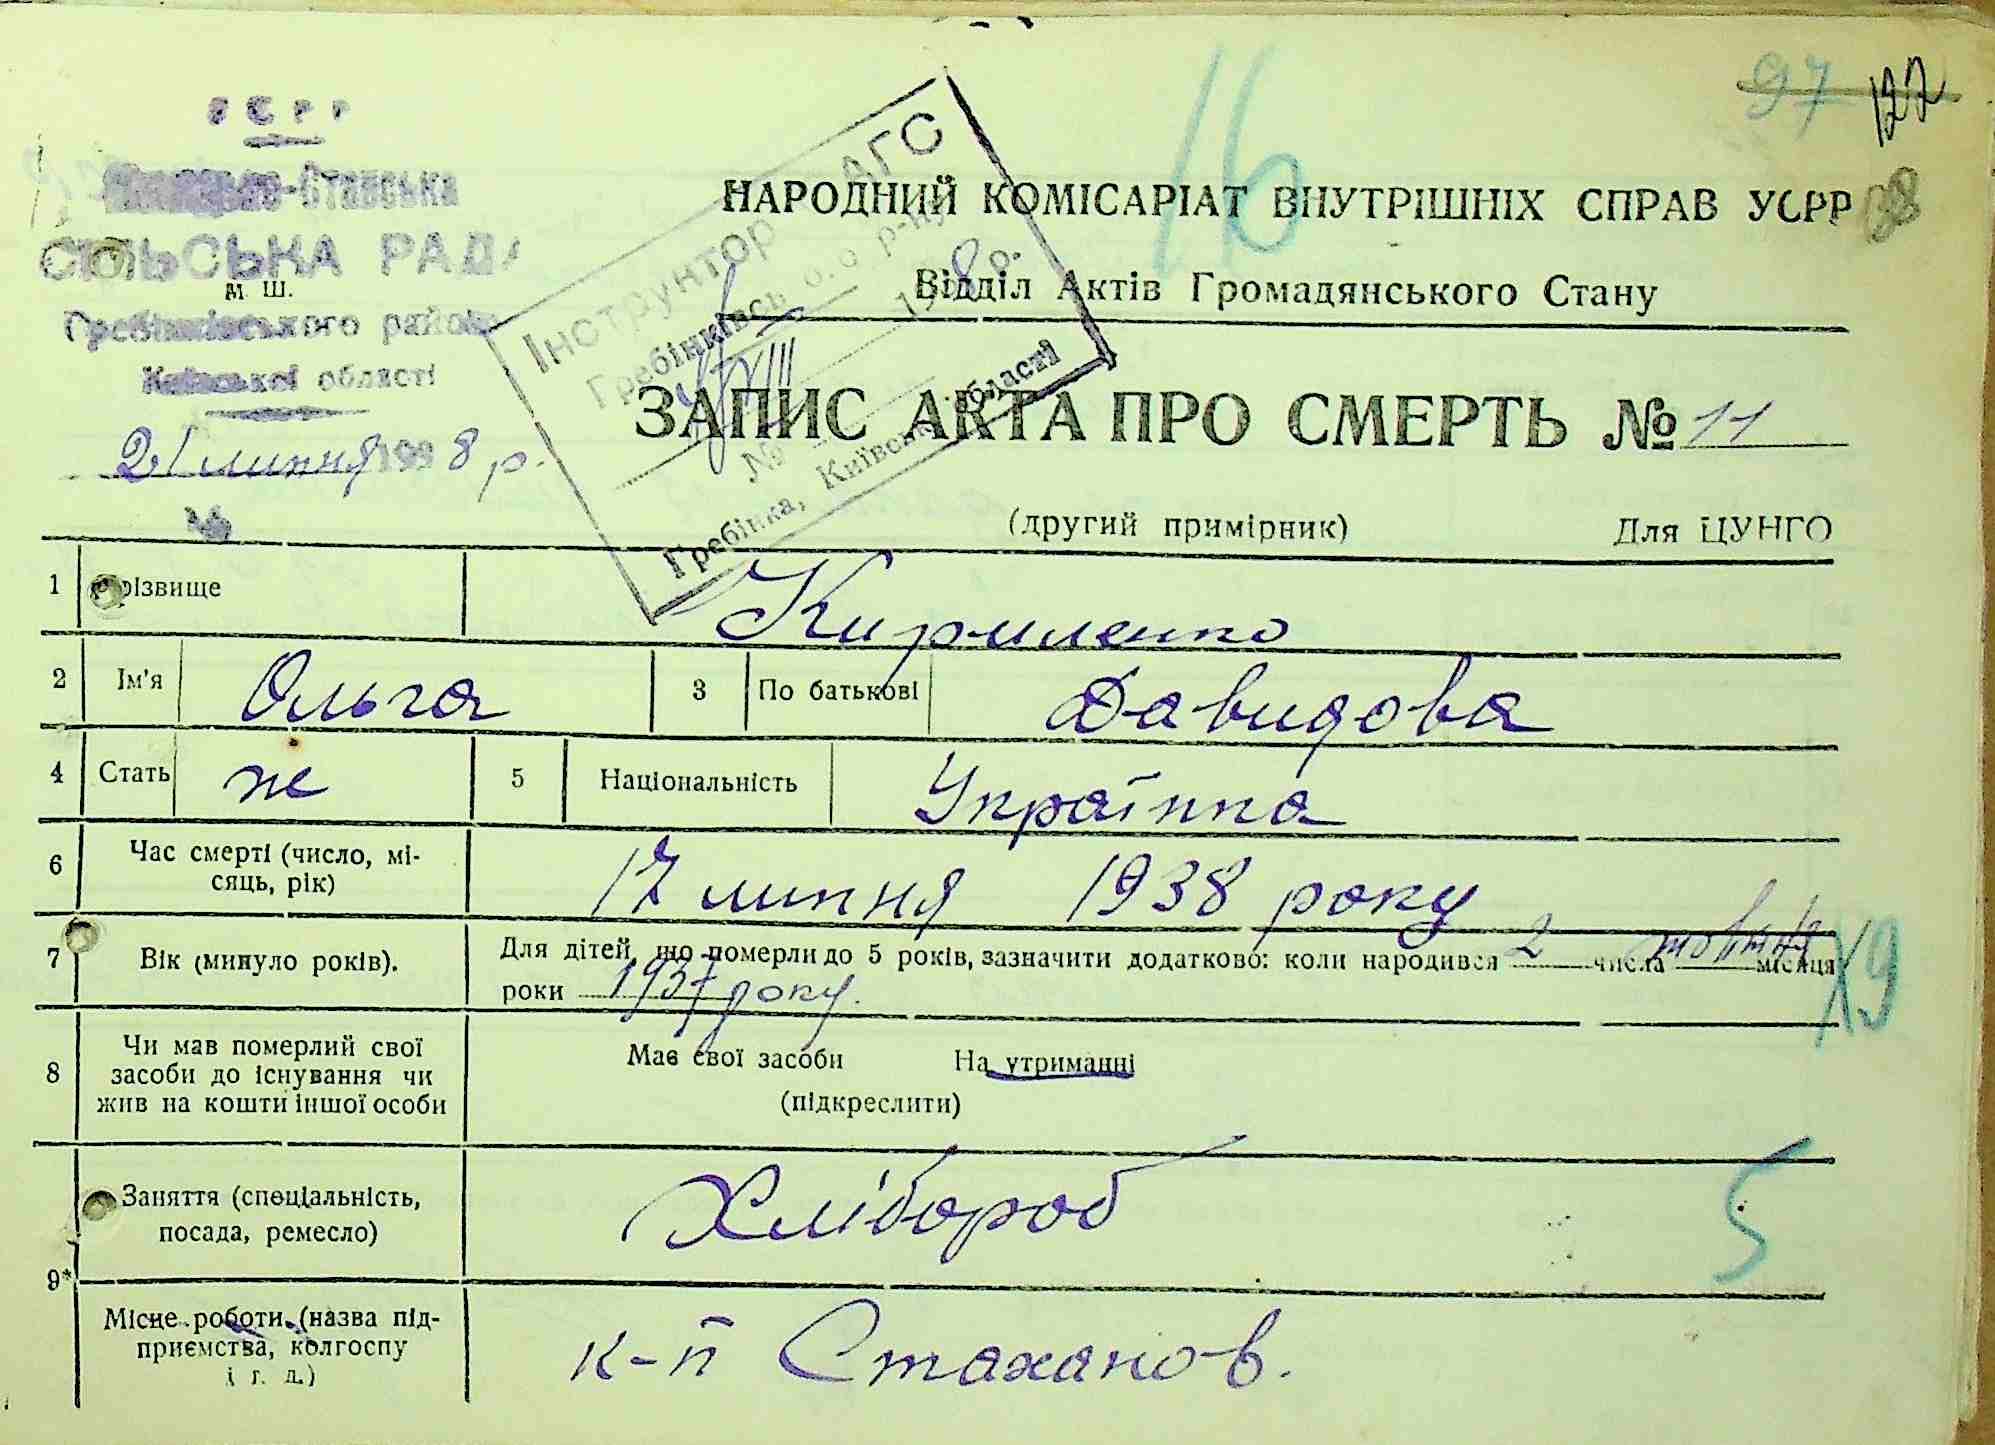 УСРР
СІЛЬСЬКА РАДА
м. Ш.
Гребінківського району
Київської області
21 липня 1938 р.
97 127
16
88
НАРОДНИЙ КОМІСАРІАТ ВНУТРІШНІХ СПРАВ УСРР
Відділ Актів Громадянського Стану
Інструктор ЗАГС
Гребінківськ о.о р-ну
8 р.
№
Гребінка, Київськ. області
ЗАПИС АКТА ПРО СМЕРТЬ № 11
(другий примірник) Для ЦУНГО
1 Прізвище Кириленко
2 Ім'я Ольга 3 По батькові Давидова
4 Стать ж 5 Національність Українка
6 Час смерті (число, мі-
сяць, рік) 17 липня 1938 року
7 Вік (минуло років). Для дітей, що померли до 5 років, зазначити додатково: коли народився 2 числа жовтня місяця
роки 1937 року.
Х9
8 Чи мав померлий свої
засоби до існування чи
жив на кошти іншої особи
Має свої засоби На утриманні
(підкреслити)
Заняття (спеціальність,
посада, ремесло) Хлібороб
5
9*
Місце роботи (назва під-
приємства, колгоспу
і т. д.)
к-п Стаханов.